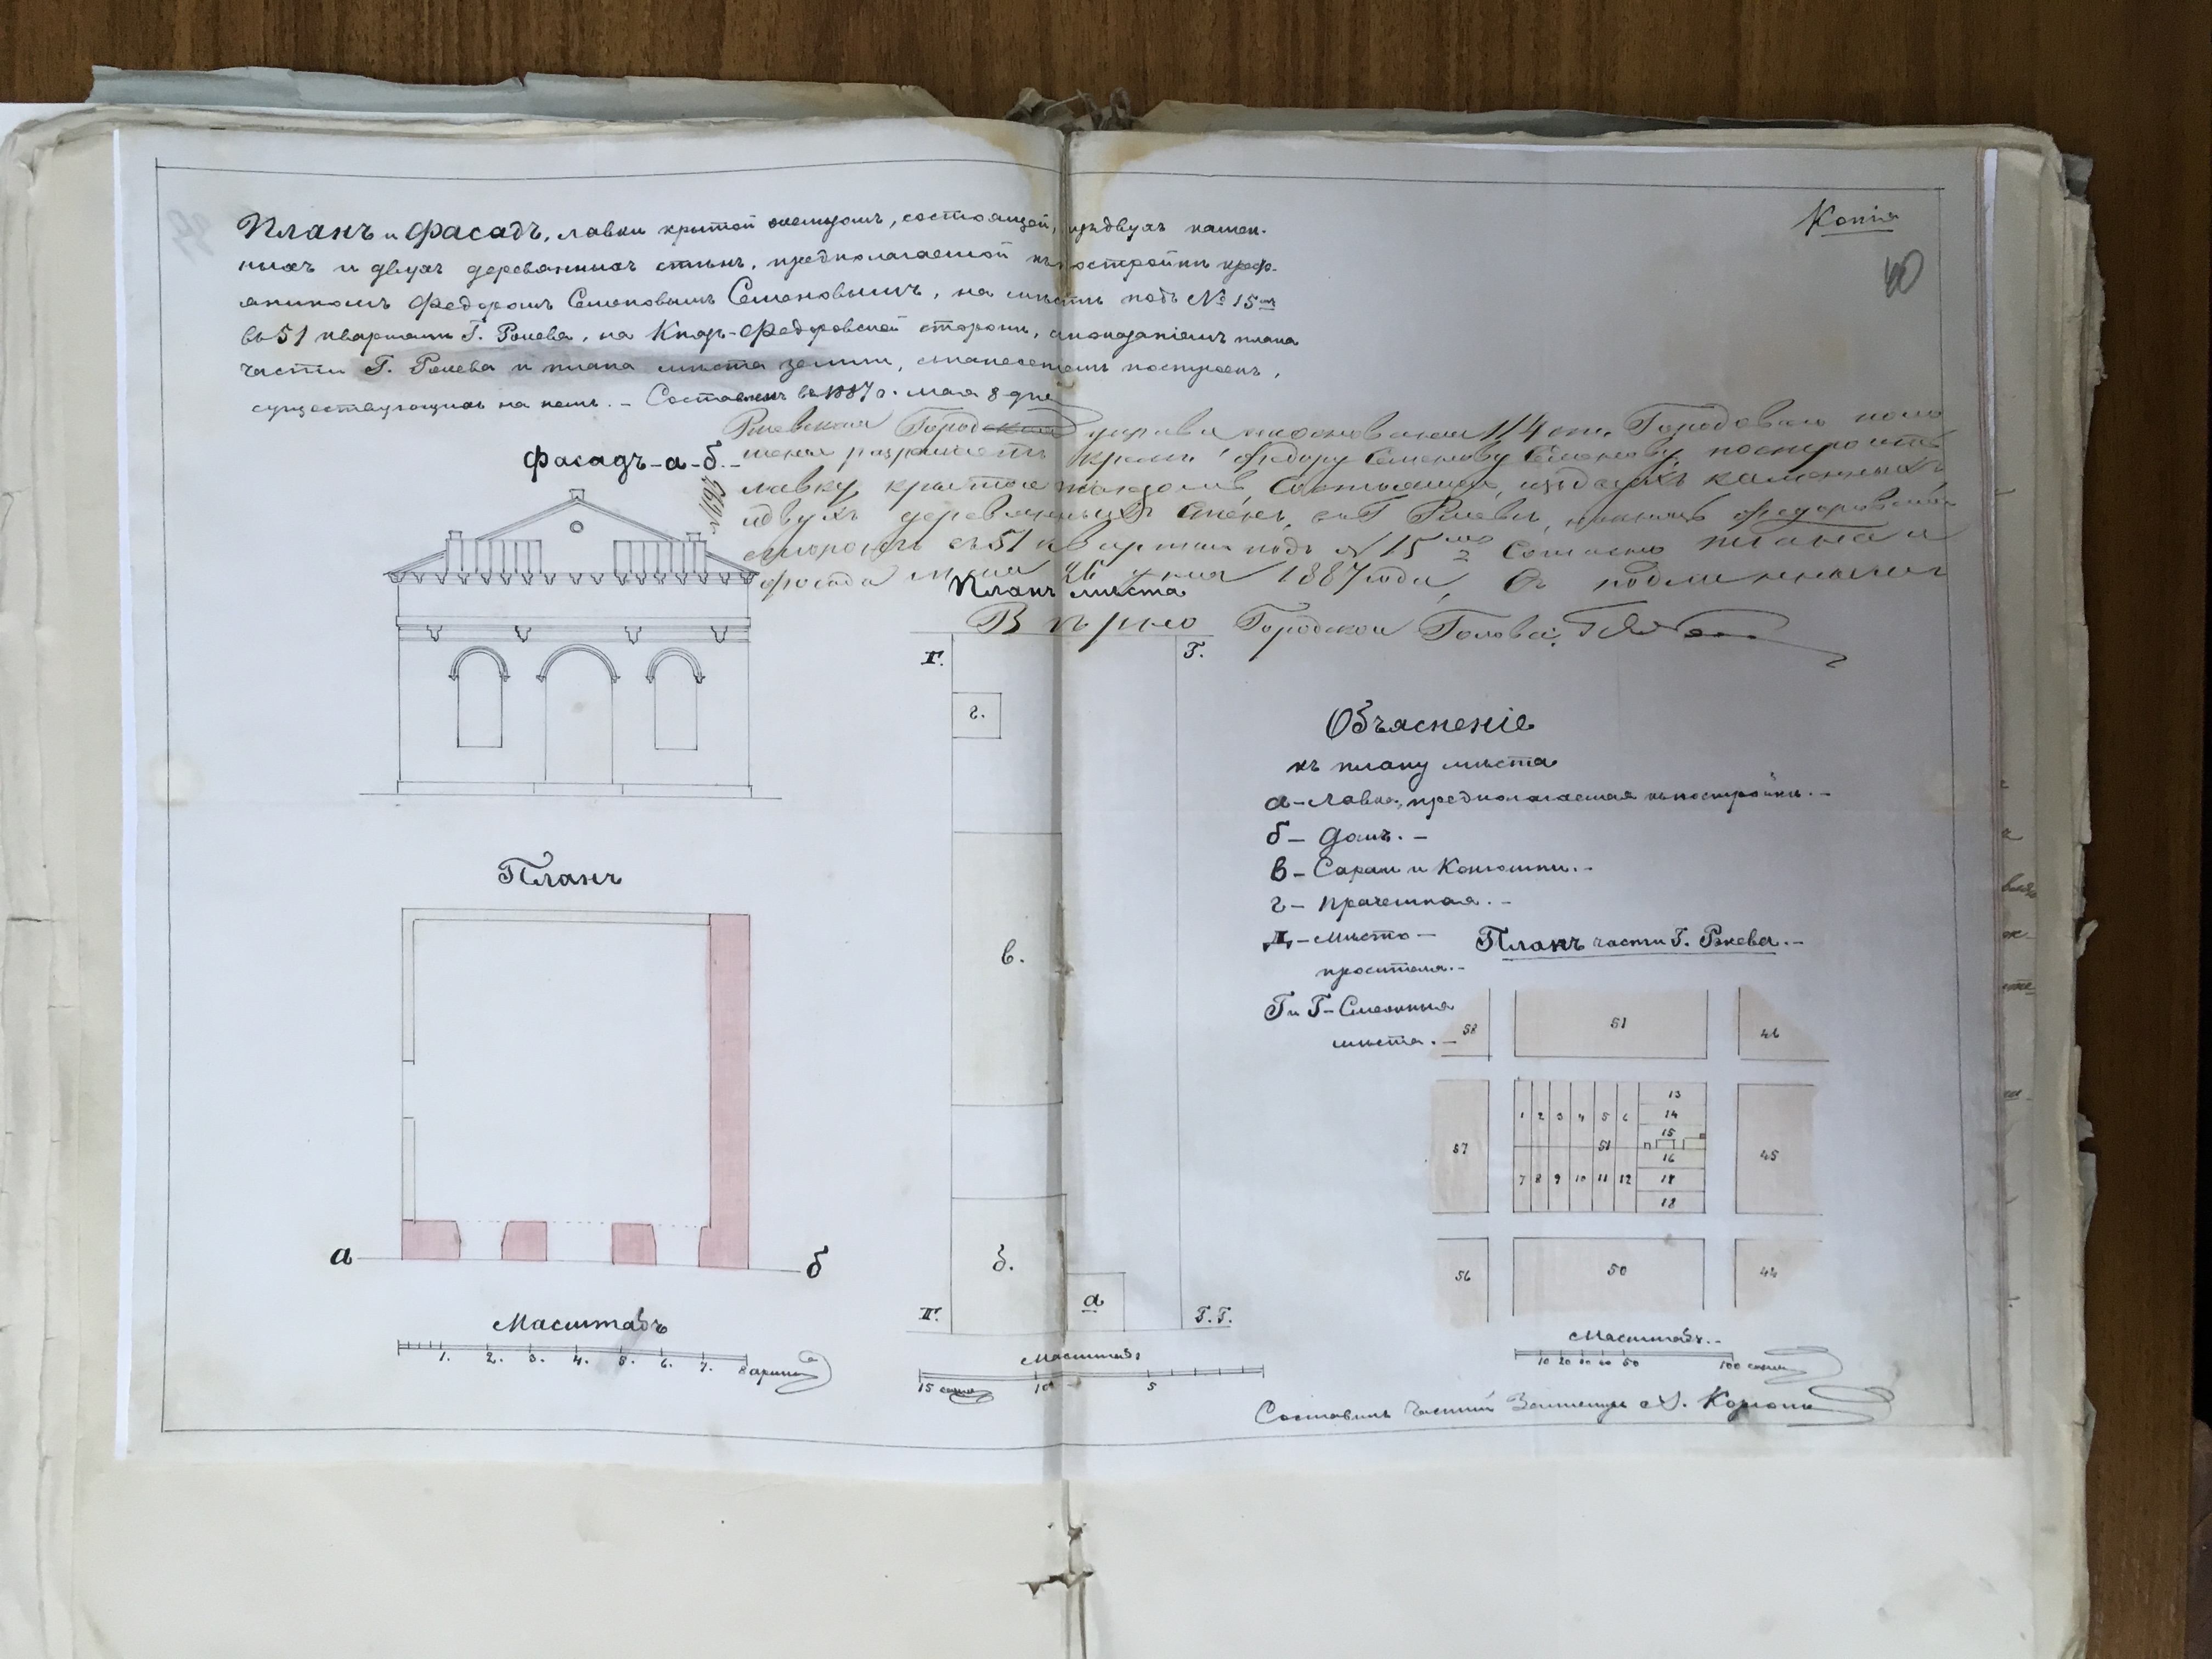 Копія
40
Планъ и фасадъ, лавки крытой желѣзомъ, состоящей, изъ двухъ камен-
ныхъ и двухъ деревянныхъ стѣнъ, предполагаемой къ постройкѣ крест-
яниномъ Федоромъ Семеновымъ Семеновымъ, на мѣстѣ подъ № 15мъ
въ 51 кварталѣ Г. Ржева, на Князь-Федоровской сторонѣ, съ показаніемъ плана
части Г. Ржева и плана мѣста земли, съ нанесеніемъ построекъ,
существующихъ на немъ. – Составленъ въ 1887 г. мая 8 дня
Ржевская Городская управа на основании 114 ст. Городового поло
женія разрѣшаетъ крест. Федору Семенову Семенову построить
лавку, крытою желѣзомъ, состоящей, изъ двухъ каменныхъ
и двухъ деревянныхъ стенъ, въ Г Ржевѣ, на князь Федоровской
сторонѣ въ 51 кварталѣ подъ № 15 Согласно плана и
фосада мая 26 дня 1887 года, Съ подлиннымъ
Вѣрно Городской Голова
№ 969
Фасадъ-а-б.-
Планъ мѣста
Г. Г.
г.
в.
б.
а
Д. Г. Г.
Масштабъ
15 саж 10 5
Планъ
а б
Масштабъ
1. 2. 3. 4. 5. 6. 7. 8 аршинъ
Объясненіе
къ плану мѣста
а – Лавка, предполагаемая къ постройкѣ. –
б – Домъ. –
в – Сараи и Конюшни. –
г – Прачешная. –
Д. – Мѣсто –
просителя. –
Г и Г – Смежныя
мѣста. –
Планъ части Г. Ржева. –
58 51 46
1 2 3 4 5 6 13
14
15
57 51 45
16
7 8 9 10 11 12 17
18
56 50 44
Масштабъ. –
10 20 30 40 50 100 саж
Составилъ Частный Землемѣръ